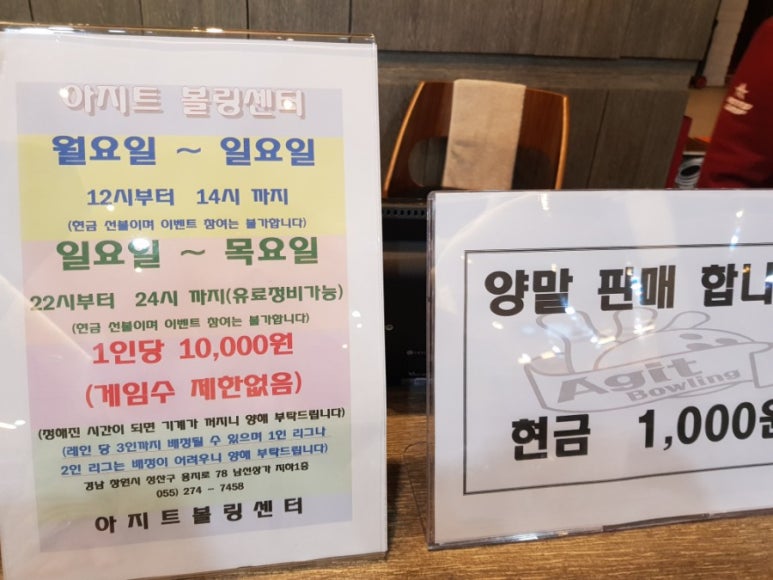 아지트 볼링센터
월요일 ~ 일요일
12시부터 14시 까지
(현금 선불이며 이벤트 참여는 불가합니다)
일요일 ~ 목요일
22시부터 24시 까지(유료정비가능)
(현금 선불이며 이벤트 참여는 불가합니다)
1인당 10,000원
(게임수 제한없음)
(정해진 시간이 되면 기계가 꺼지니 양해 부탁드립니다)
(레인 당 3인까지 배정될 수 있으며 1인 리그나
2인 리그는 배정이 어려우니 양해 부탁드립니다)
경남 창원시 성산구 용지로 78 남선상가 지하1층
055) 274 - 7458
아지트볼링센터
양말 판매 합니
Agit
Bowling
현금 1,000원